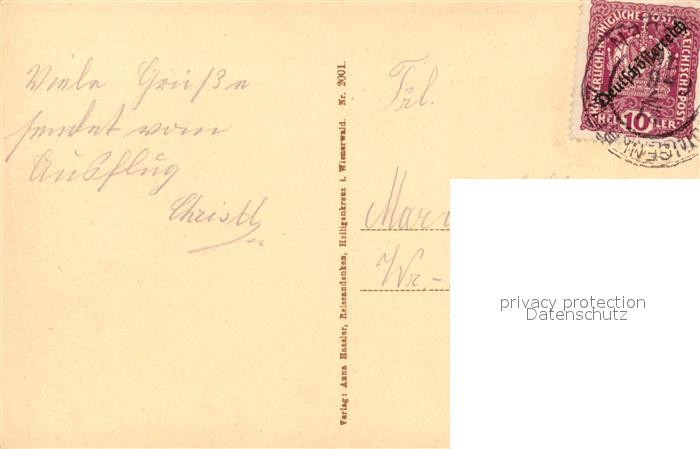 Viele Grüße
sendet vom
Ausflug
Christl
Verlag: Anna Hassler, Reiseandenken, Heiligenkreuz i. Wienerwald. Nr. 2001.
Frl.
Wr.-
KAISERLICH KÖNIGLICHE POST
ÖSTERREICHISCHE POST
Deutschösterreich
10
HELLER
privacy protection
Datenschutz